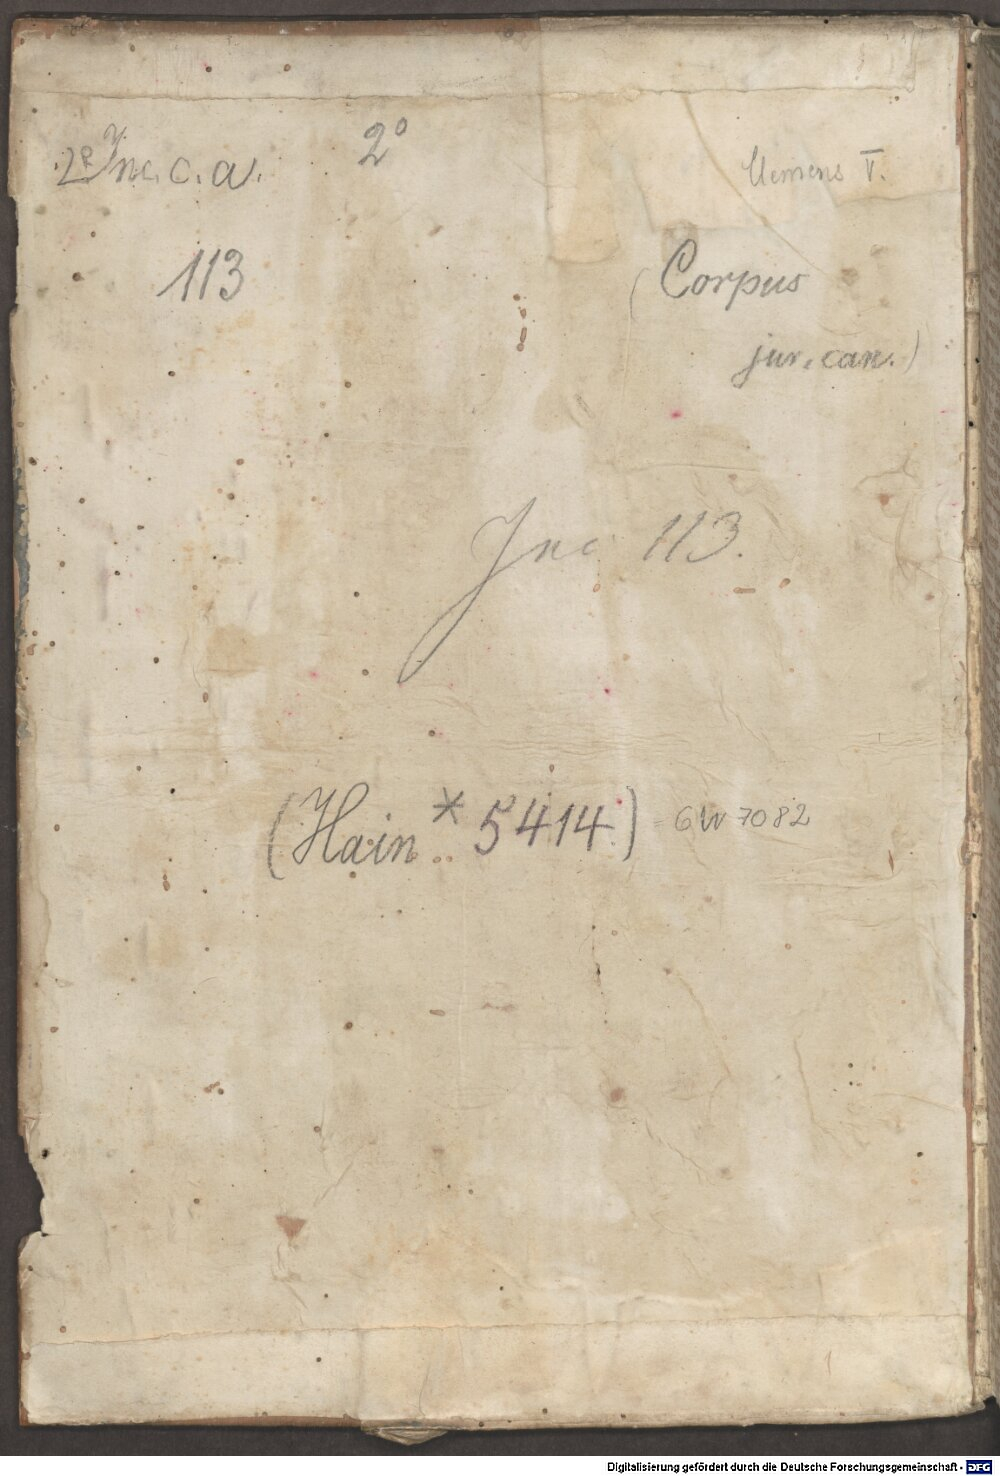 2° Inc. c. a.
2°
Clemens V.
113
(Corpus
jur. can.)
Inc 113.
(Hain * 5414.) = GW 7082
Digitalisierung gefördert durch die Deutsche Forschungsgemeinschaft - DFG